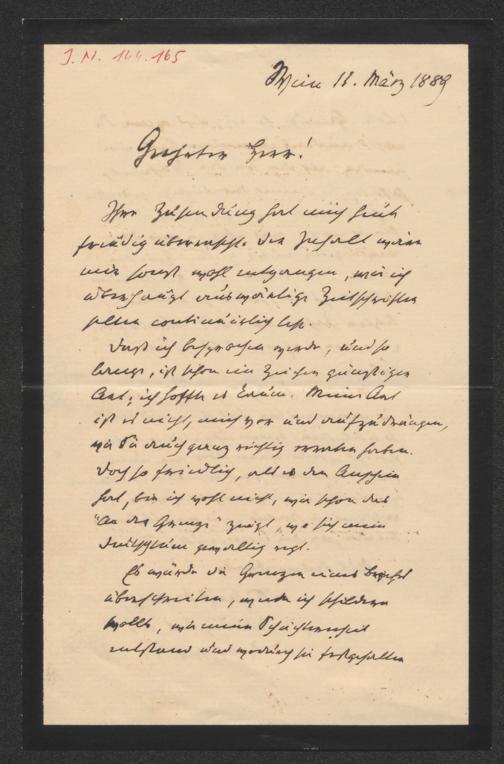 J.N. 166.165
Wien 18. März 1889
Geehrter Herr!
Ihre Zusendung hat mich sehr
freudig überrascht. Der Inhalt wäre
mir sonst wohl entgangen, wie ich
überhaupt auswärtige Zeitschriften
selten continuirlich lese.
Daß ich besprochen werde, und so
lange, ist schon ein Zeichen günstiger
Art; ich hoffte es kaum. Meine Art
ist es nicht, mich vor und aufzudrängen,
wie Sie auch ganz richtig errathen haben.
Doch so friedlich, als es den Anschein
hat, bin ich wohl nicht, wie schon das
"An der Grenze" zeigt, wo sich mein
Deutschtum gewaltig regt.
Es würde die Grenzen eines Briefes
überschreiten, wenn ich schildern
wollte, wie meine Schüchternheit
entstand und wodurch sie festgehalten